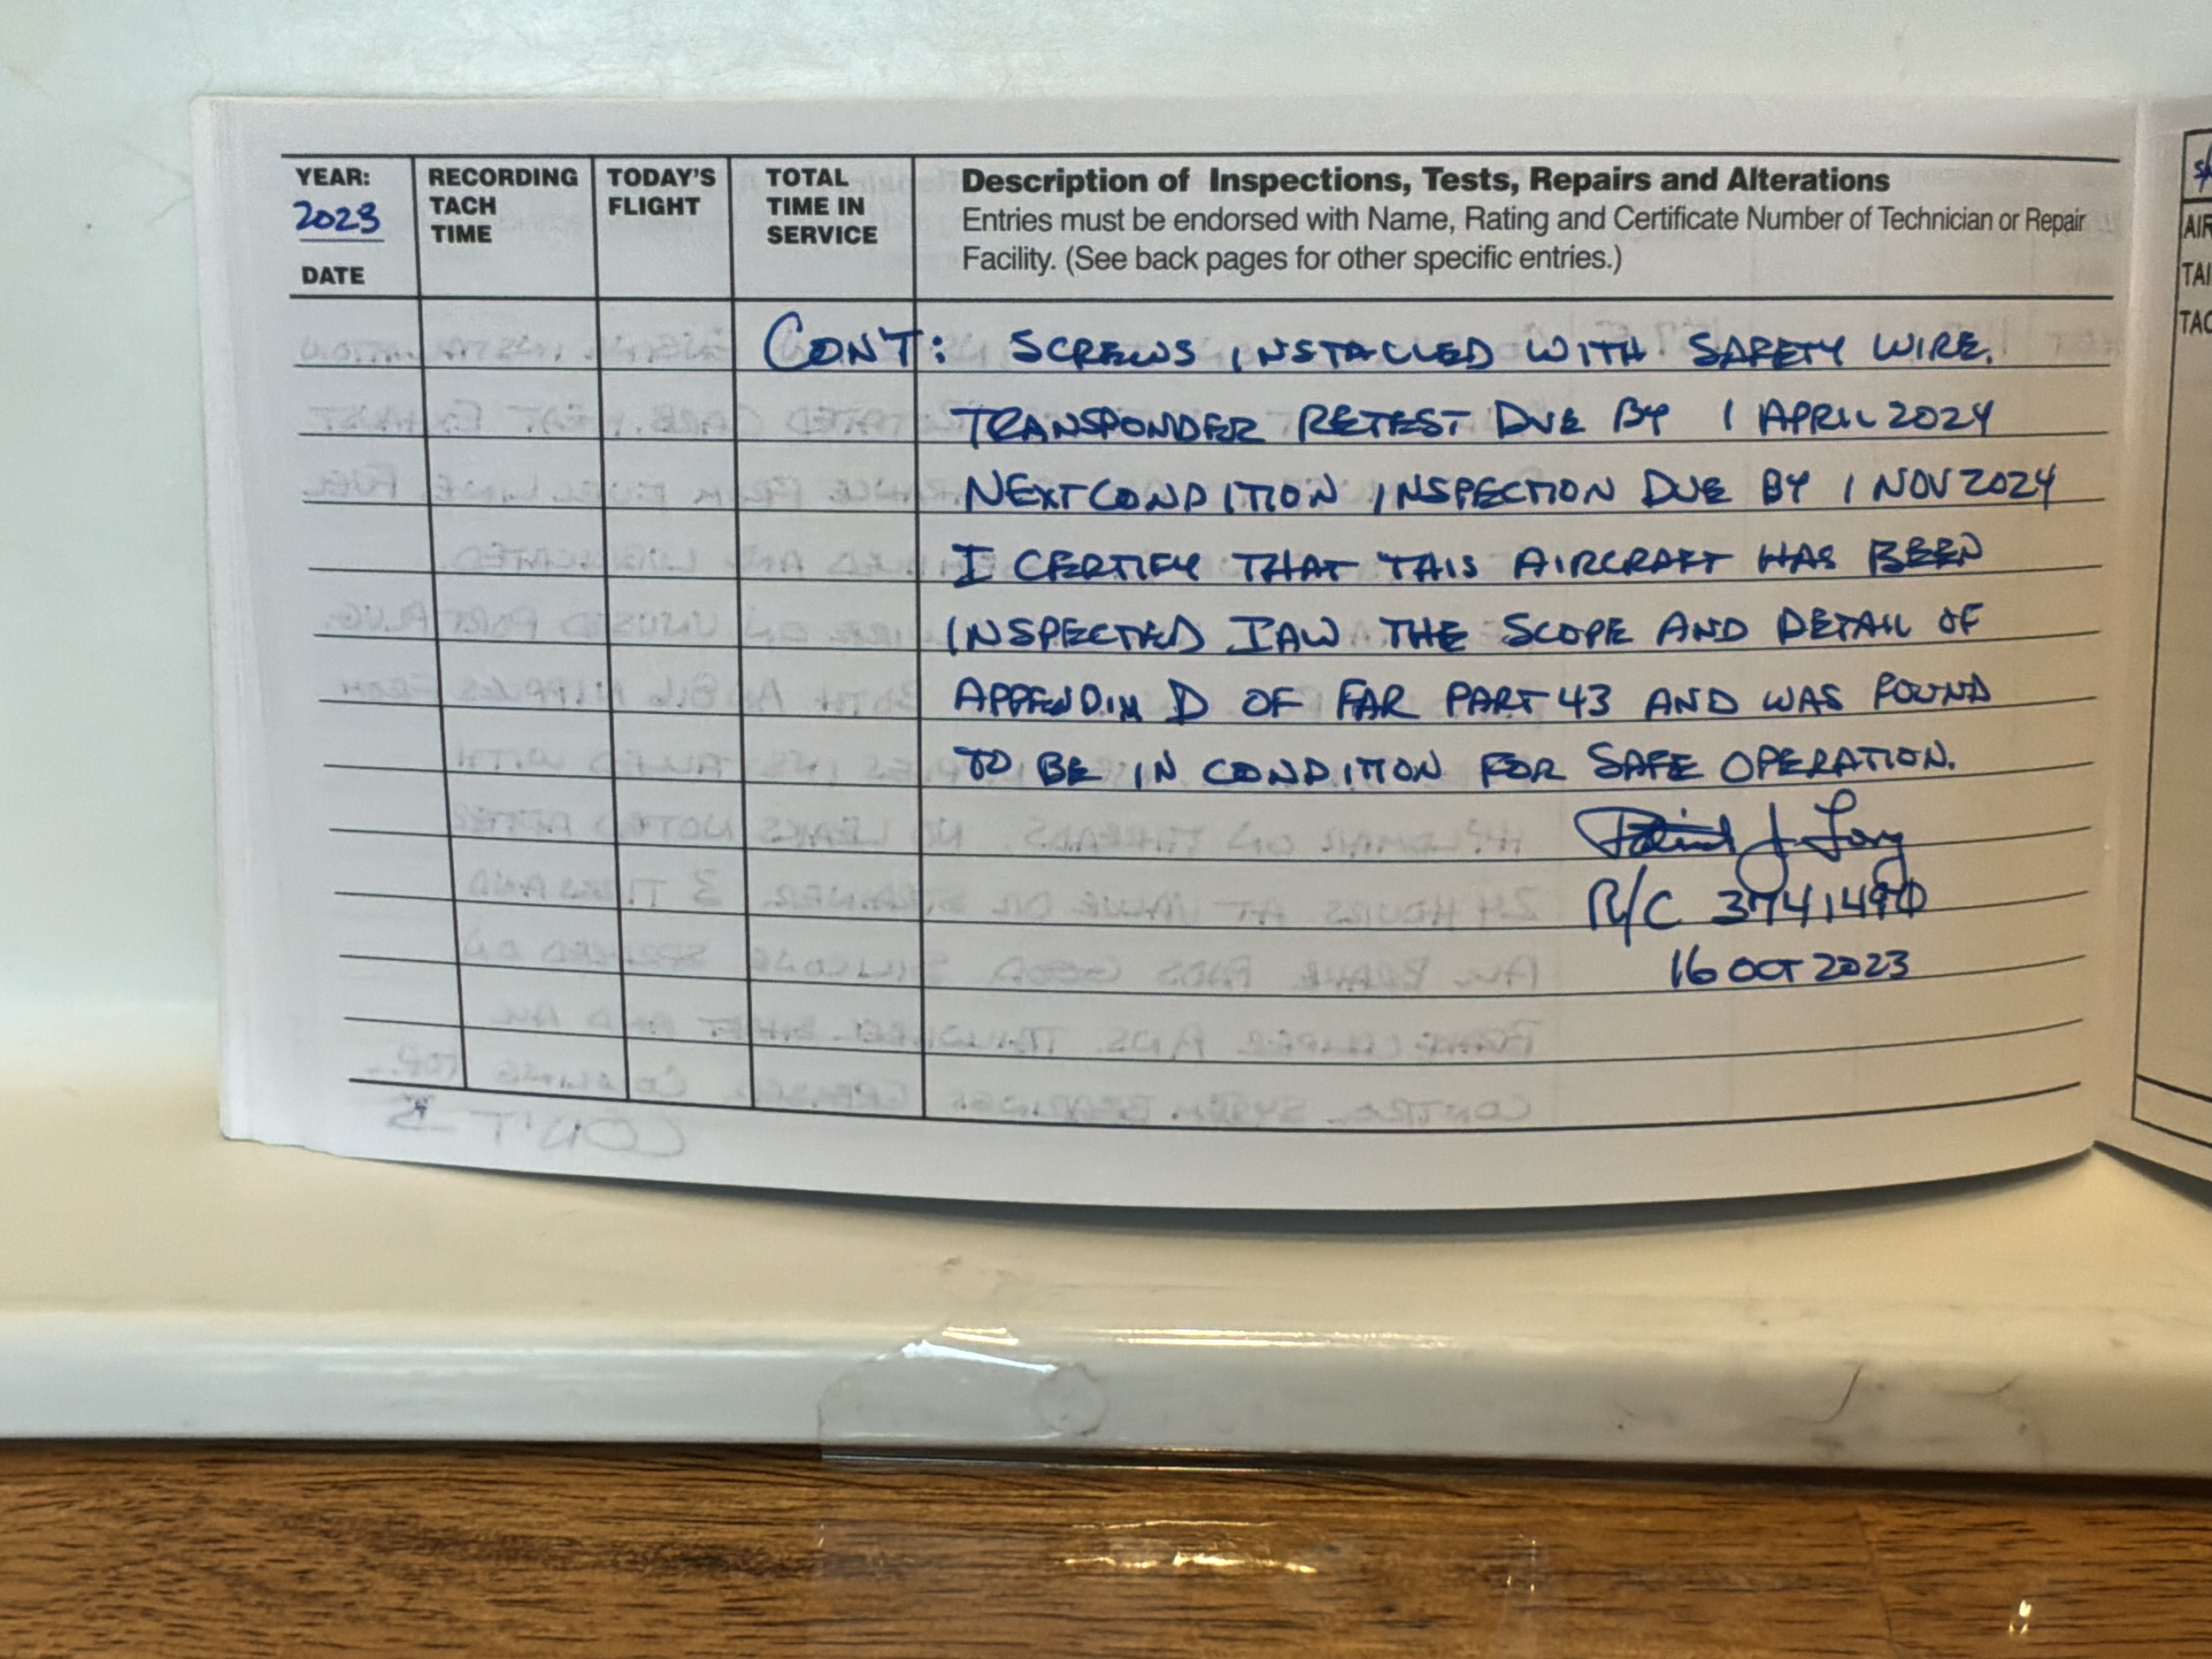 YEAR:
2023
DATE
RECORDING
TACH
TIME
TODAY'S
FLIGHT
TOTAL
TIME IN
SERVICE
Description of Inspections, Tests, Repairs and Alterations
Entries must be endorsed with Name, Rating and Certificate Number of Technician or Repair
Facility. (See back pages for other specific entries.)
CONT: SCREWS INSTALLED WITH SAFETY WIRE.
TRANSPONDER RETEST DUE BY 1 APRIL 2024
NEXT CONDITION INSPECTION DUE BY 1 NOV 2024
I CERTIFY THAT THIS AIRCRAFT HAS BEEN
INSPECTED IAW THE SCOPE AND DETAIL OF
APPENDIX D OF FAR PART 43 AND WAS FOUND
TO BE IN CONDITION FOR SAFE OPERATION.
R/C
16 OCT 2023
AIR
TAI
TAC